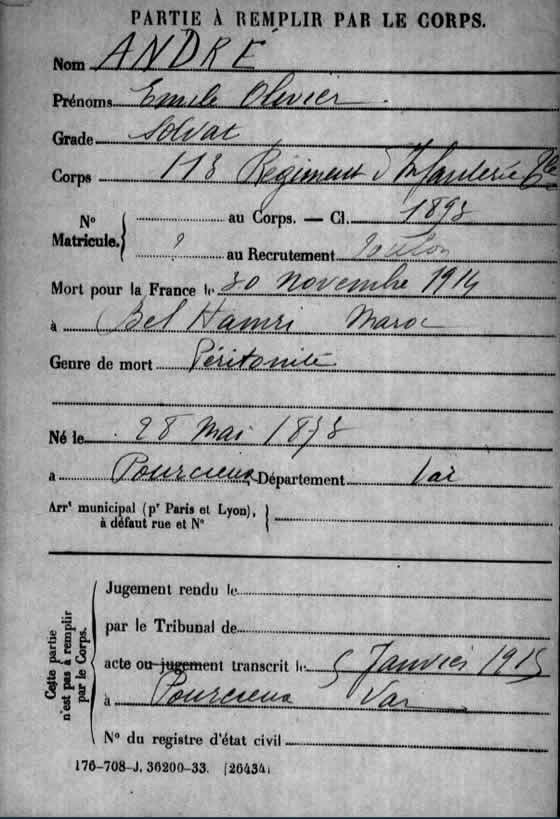 PARTIE À REMPLIR PAR LE CORPS.
Nom ANDRÉ
Prénoms Emile Olivier
Grade Soldat
Corps 113 Régiment d'Infanterie
N° Matricule. au Corps. — Cl. 1893
? au Recrutement Toulon
Mort pour la France le 30 novembre 1914
à Bel Hamri Maroc
Genre de mort Péritonite
Né le 28 Mai 1873
a Pourcieux Département Var
Arrt municipal (pr Paris et Lyon),
à défaut rue et N°
Cette partie n'est pas à remplir par le Corps.
Jugement rendu le
par le Tribunal de
acte ou jugement transcrit le 5 Janvier 1915
à Pourcieux Var
N° du registre d'état civil
176-708-J. 36200-33. [26434]